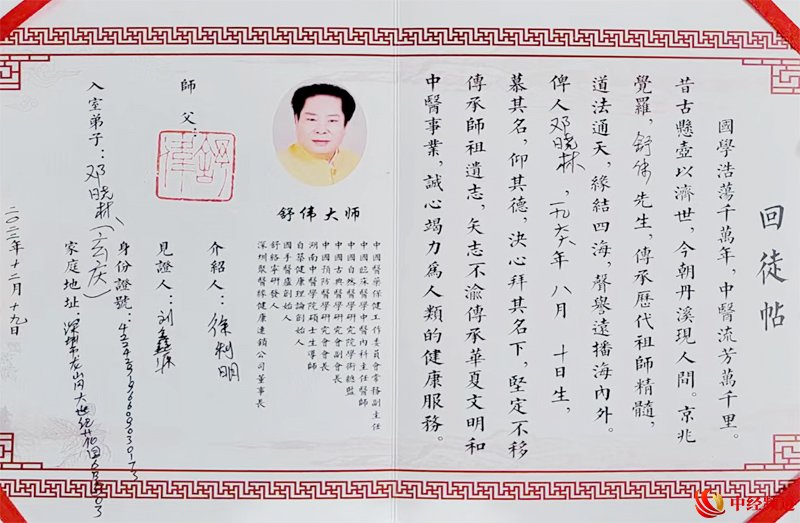 回徒帖
國學浩蕩千萬年，中醫流芳萬千里。
昔古懸壺以濟世，今朝丹溪現人間。京兆
覺羅，舒伟先生，傳承歷代祖師精髓，
道法通天，緣結四海，聲譽遠播海內外。
俾人邓晓林，一九六六年 八月 十日生，
慕其名，仰其德，決心拜其名下，堅定不移
傳承師祖遺志，矢志不渝傳承華夏文明和
中醫事業，誠心竭力為人類的健康服務。
舒伟大师
中國醫藥保健工作委員會常務副主任
中國臨床醫學中醫內科主任醫師
中國自然醫學研究院學術總監
中國古典醫學研究會副會長
中國預防醫學研究會會長
湖南中醫學院碩士生導師
自基健康理論創始人
國手醫廬創始人
舒絡寧研發人
深圳聚醫緣健康連鎖公司董事長
介紹人：徐利明
師父：
見證人：刘鑫
入室弟子：邓晓林（玄庆）
身份證號：
家庭地址：深圳市龙岗大世纪花园
二〇二二年十二月十九日
中经频道